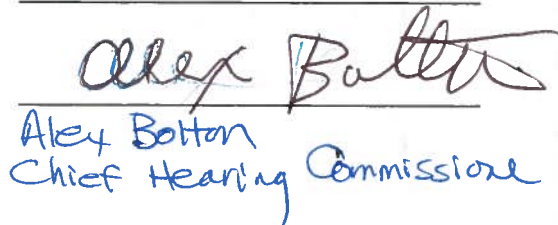 Alex Bolton
Alex Bolton
Chief Hearing Commissione